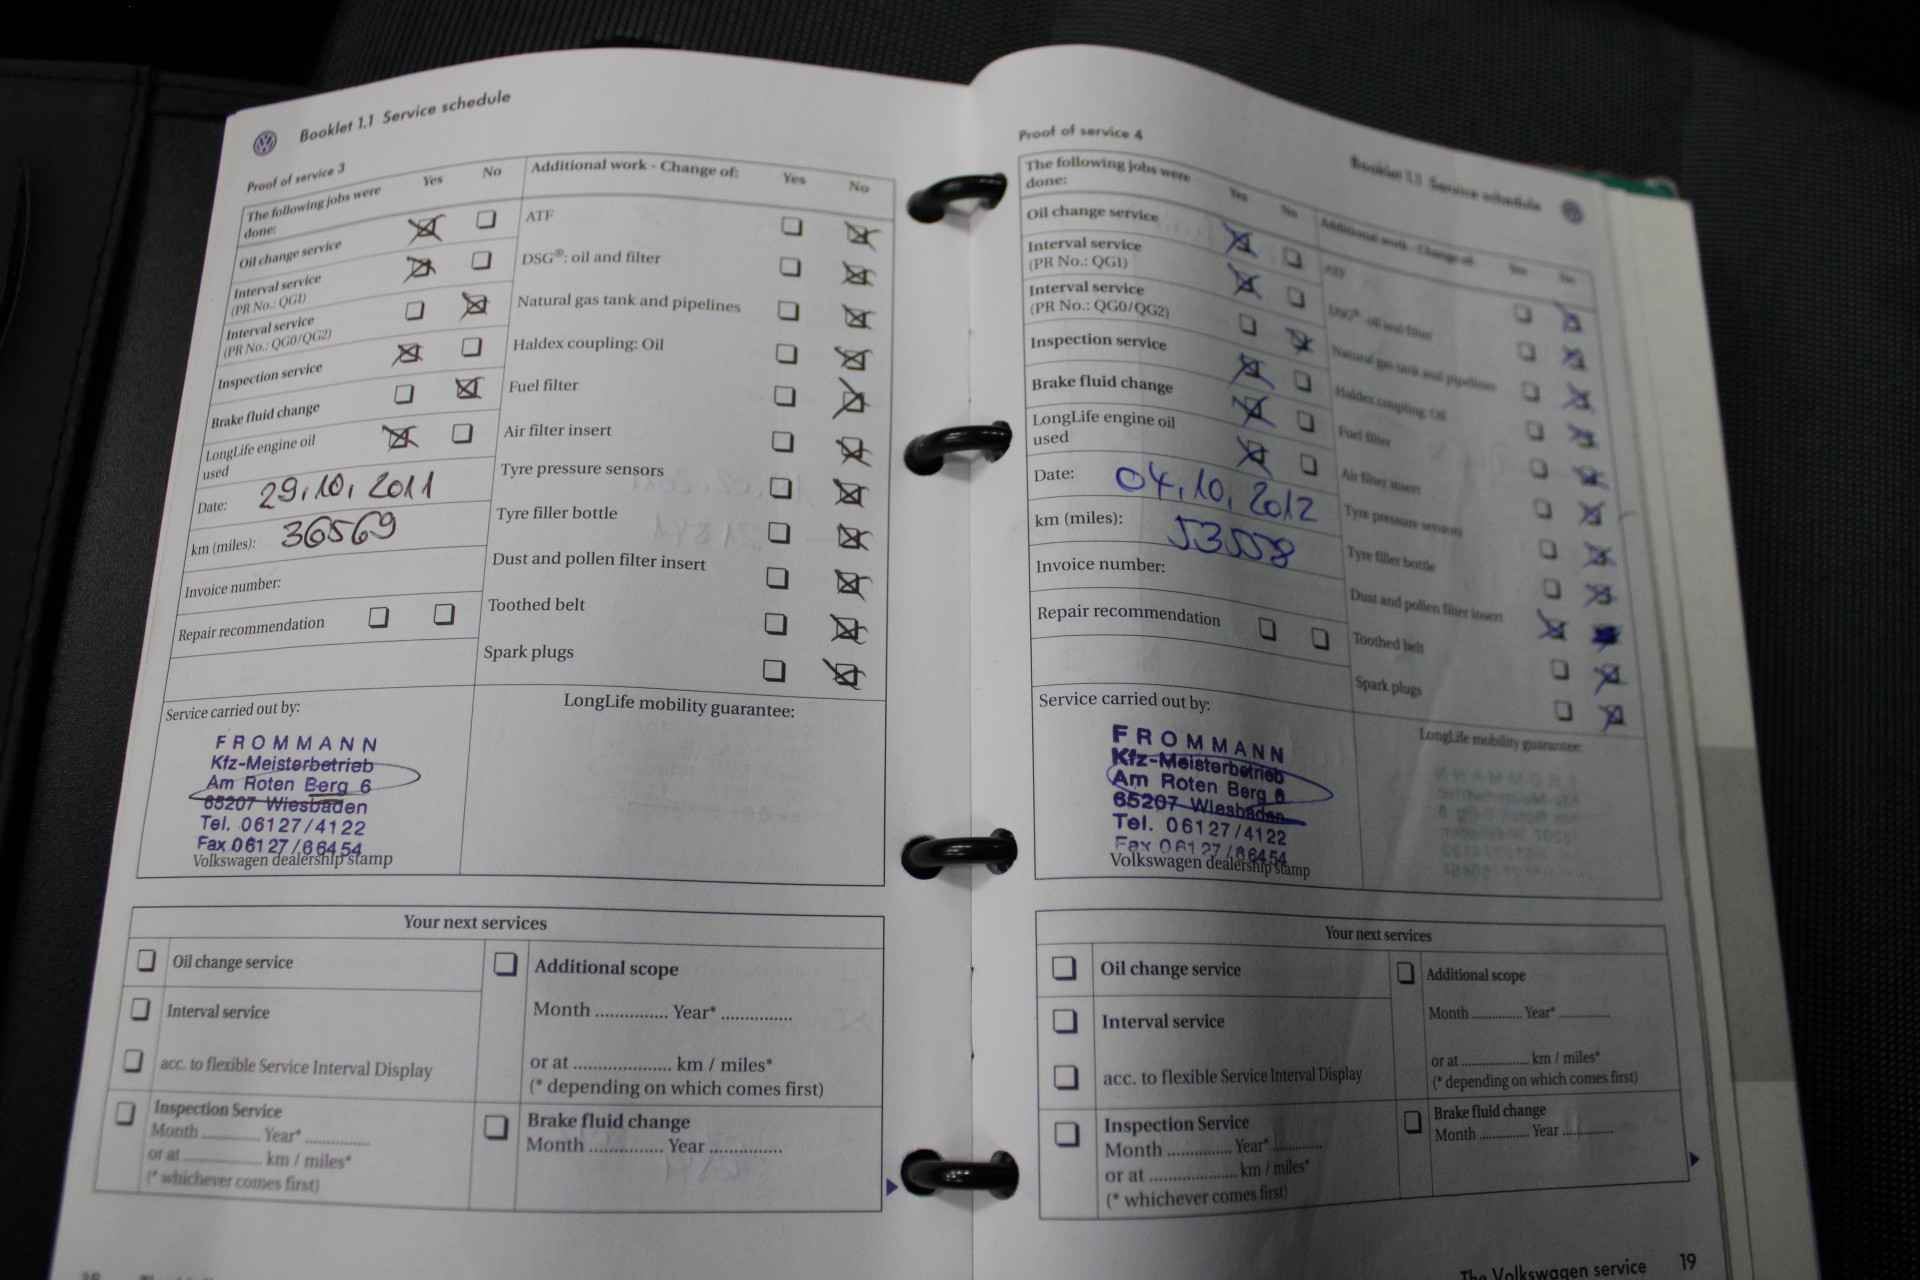 Booklet 1.1 Service schedule
Proof of service 3
The following jobs were done:
Yes No
Additional work - Change of:
Yes No
Oil change service
Interval service
(PR No.: QG1)
Interval service
(PR No.: QG0/QG2)
Inspection service
Brake fluid change
LongLife engine oil
used
Date: 29.10.2011
km (miles): 36569
Invoice number:
Repair recommendation
ATF
DSG®: oil and filter
Natural gas tank and pipelines
Haldex coupling: Oil
Fuel filter
Air filter insert
Tyre pressure sensors
Tyre filler bottle
Dust and pollen filter insert
Toothed belt
Spark plugs
Service carried out by:
FROMMANN
Kfz-Meisterbetrieb
Am Roten Berg 6
65207 Wiesbaden
Tel. 06127/4122
Fax 06127/66454
Volkswagen dealership stamp
LongLife mobility guarantee:
Your next services
Oil change service
Interval service
acc. to flexible Service Interval Display
Inspection Service
Month ............. Year* ..............
or at ................ km / miles*
(* whichever comes first)
Additional scope
Month ............... Year* ..............
or at .................... km / miles*
(* depending on which comes first)
Brake fluid change
Month ............... Year ...............
Proof of service 4
Booklet 1.1 Service schedule
The following jobs were
done:
Yes No
Additional work - Change of:
Yes No
Oil change service
Interval service
(PR No.: QG1)
Interval service
(PR No.: QG0/QG2)
Inspection service
Brake fluid change
LongLife engine oil
used
Date: 04.10.2012
km (miles): 53558
Invoice number:
Repair recommendation
ATF
DSG®: oil and filter
Natural gas tank and pipelines
Haldex coupling: Oil
Fuel filter
Air filter insert
Tyre pressure sensors
Tyre filler bottle
Dust and pollen filter insert
Toothed belt
Spark plugs
Service carried out by:
FROMMANN
Kfz-Meisterbetrieb
Am Roten Berg 6
65207 Wiesbaden
Tel. 06127/4122
Fax 06127/66454
Volkswagen dealership stamp
LongLife mobility guarantee:
Your next services
Oil change service
Interval service
acc. to flexible Service Interval Display
Inspection Service
Month ............. Year* ..........
or at .................. km / miles*
(* whichever comes first)
Additional scope
Month ............ Year* ............
or at ................ km / miles*
(* depending on which comes first)
Brake fluid change
Month ............ Year ............
The Volkswagen service 19